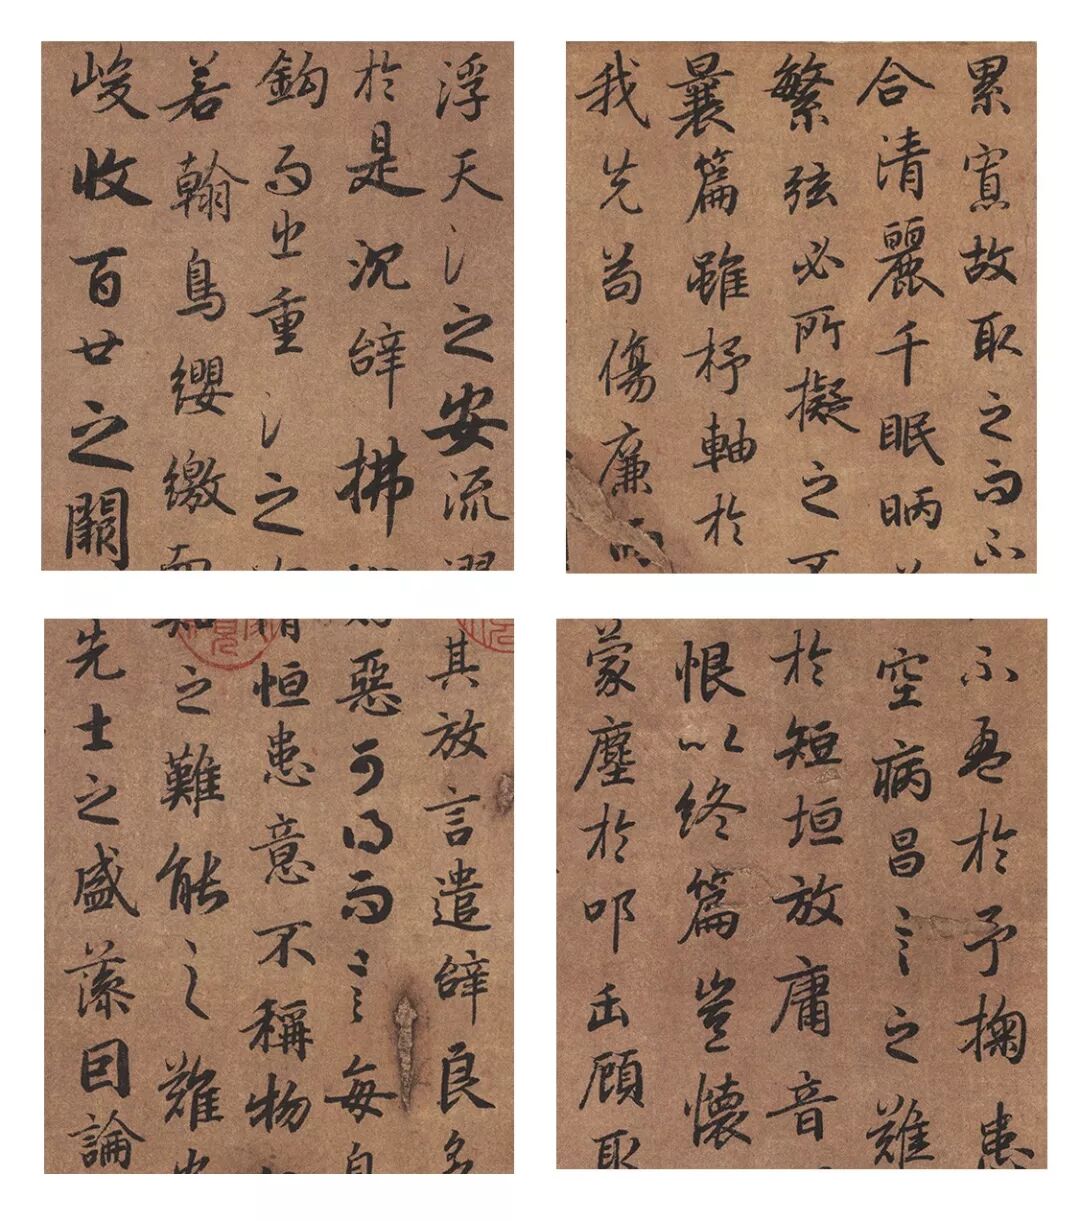 浮天淵之安流濯
於是沉辭拂
鈎而出重淵之
若翰鳥纓繳而
峻收百世之闕
累寡故取之而不
合清麗千眠昞
繁弦必所擬之不
曩篇雖杼軸於
我先苟傷廉而
其放言遣辭良多
惡可得而言每自
情恒患意不稱物
知之難能之難也
先士之盛藻因論
不盈於予掬患
空病昌言之難
於短垣放庸音
恨以終篇豈懷
蒙塵於叩缶顧取